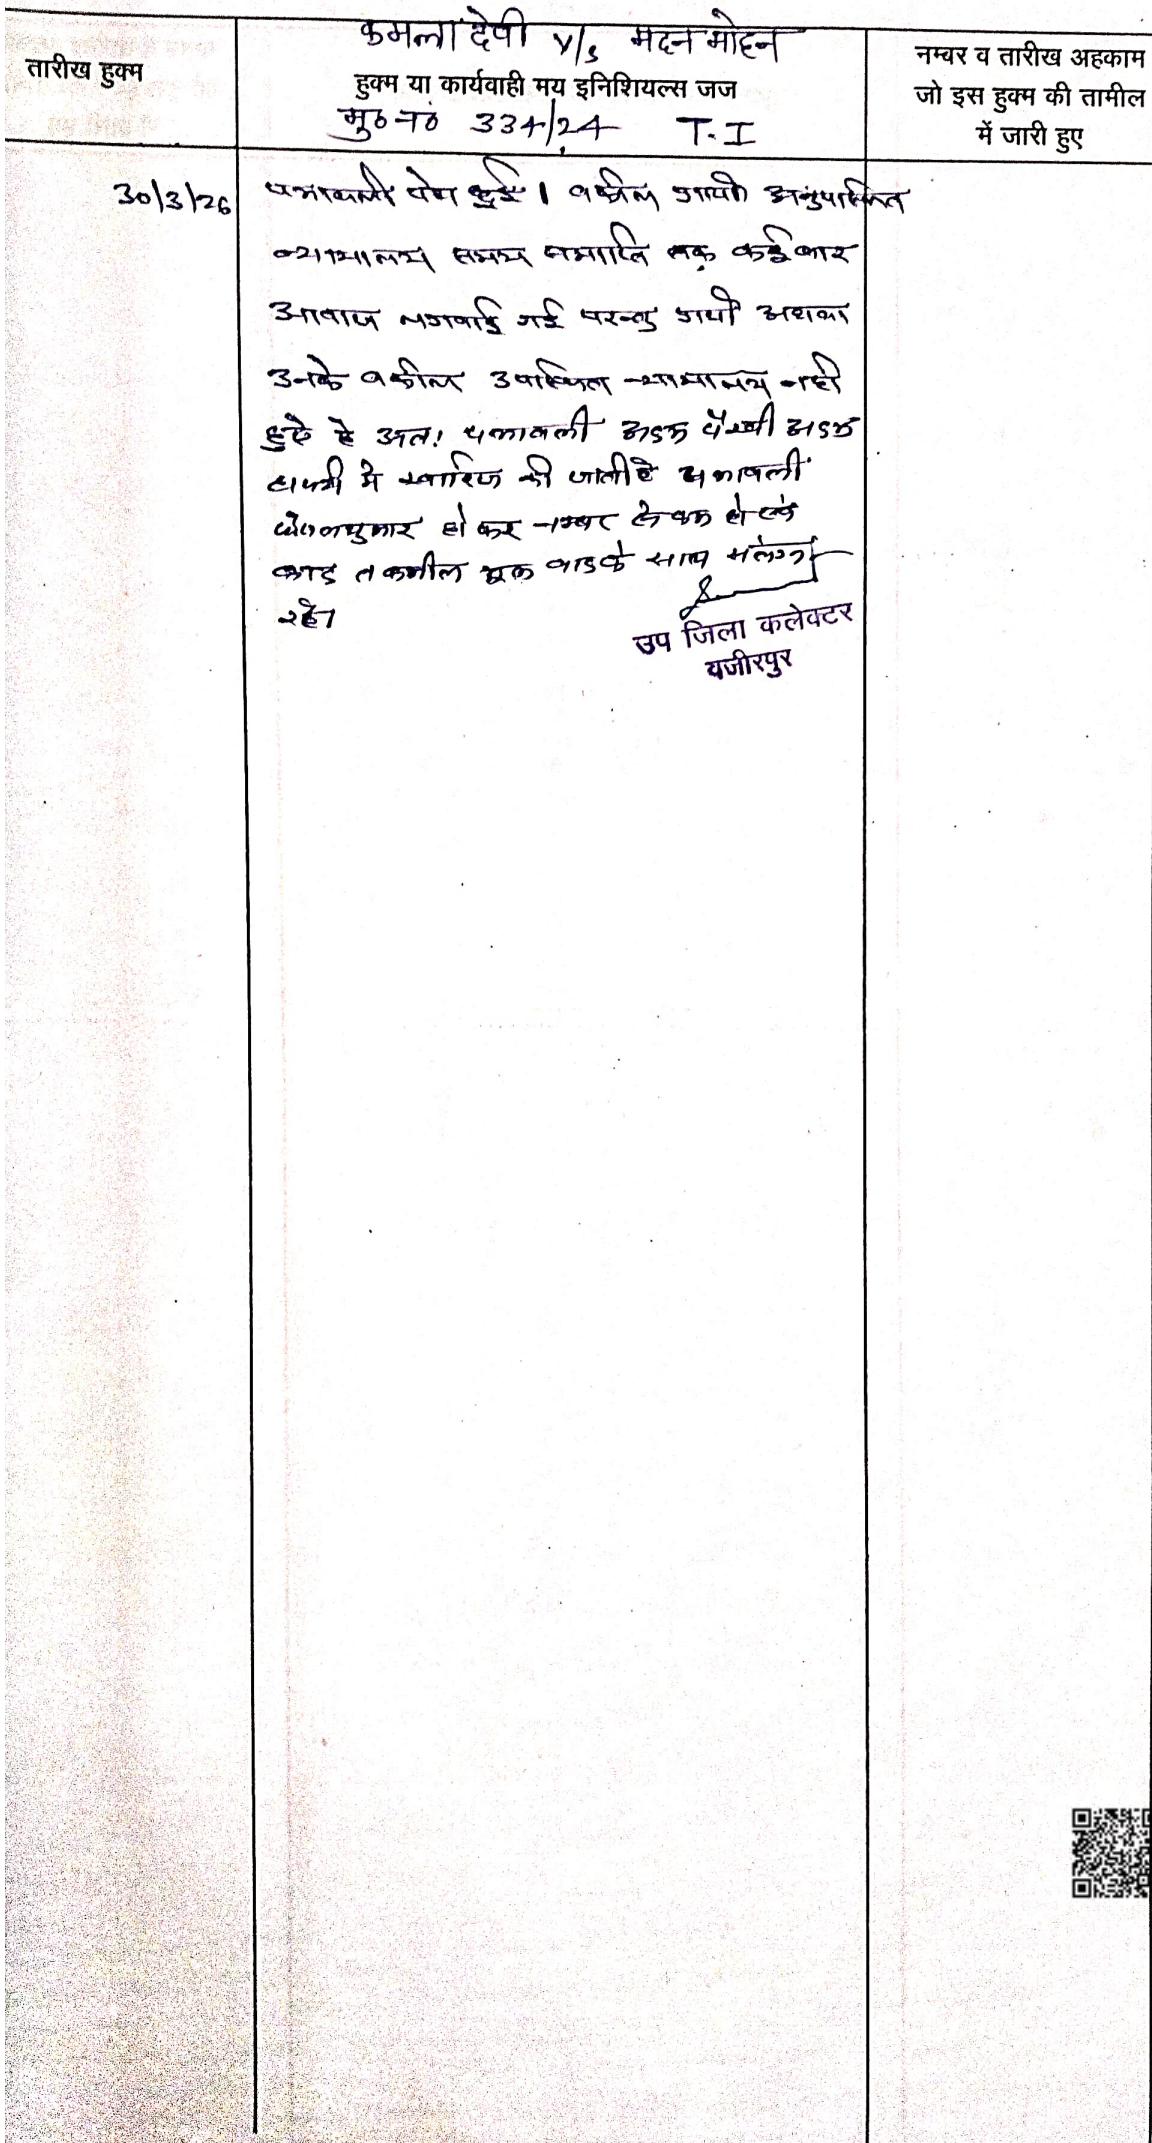 कमला देवी V/s मदन मोहन
तारीख हुक्म
हुक्म या कार्यवाही मय इनिशियल्स जज
नम्बर व तारीख अहकाम
जो इस हुक्म की तामील
में जारी हुए
मु० नं० 334/24 T.I
30/3/26
पत्रावली पेश हुई। वकील प्रार्थी अनुपस्थित
न्यायालय समय समाप्ति तक कई बार
आवाज लगवाई गई परन्तु प्रार्थी अथवा
उनके वकील उपस्थित न्यायालय नही
हुऐ है अतः पत्रावली अदम पैरवी अदम
हाजरी मे खारिज की जाती है पत्रावली
हो कर नम्बर से कम हो
बाद तकमील मूल वाद के साथ संलग्न
रहे।
उप जिला कलेक्टर
वजीरपुर